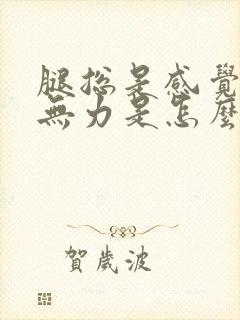 腿總是感覺
無力是怎麼
賀歲波